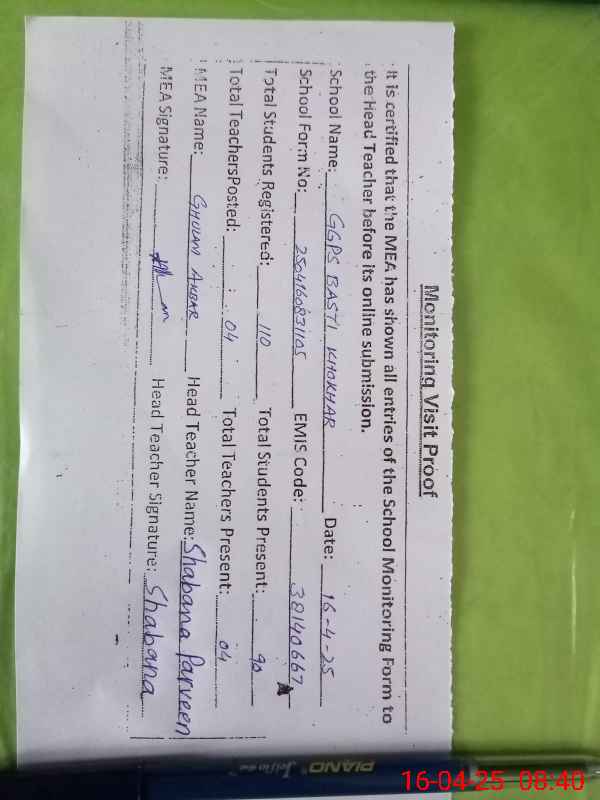 Monitoring Visit Proof
It is certified that the MEA has shown all entries of the School Monitoring Form to
the Head Teacher before its online submission.
School Name: GGPS BASTI KHOKHAR Date: 16-4-25
School Form No: 250416083110S EMIS Code: 38140667
Total Students Registered: 110 Total Students Present: 90
Total TeachersPosted: 04 Total Teachers Present: 04
MEA Name: GHULAM AKBAR Head Teacher Name: Shabana Parveen
MEA Signature: Head Teacher Signature: Shabana
PIANO
16-04-25 08:40